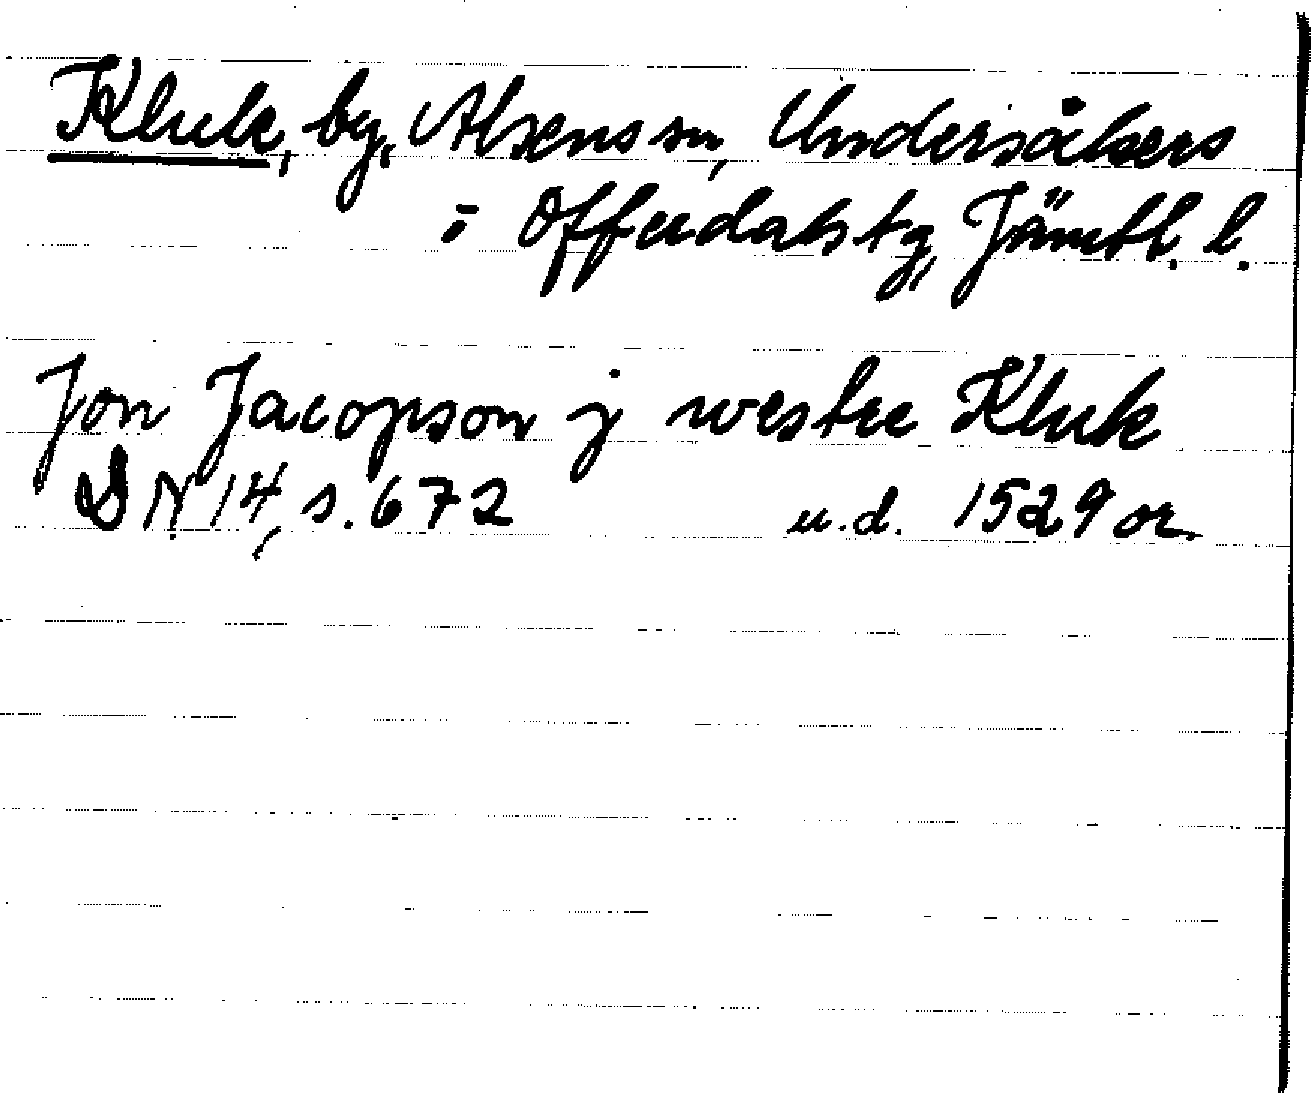 Kluk, by, Alsens sn, Undersåkers
o Offerdals tg, Jämtl. l.
Jon Jacopson j westre Kluk
DN 14, s. 672 u.d. 1529 or.